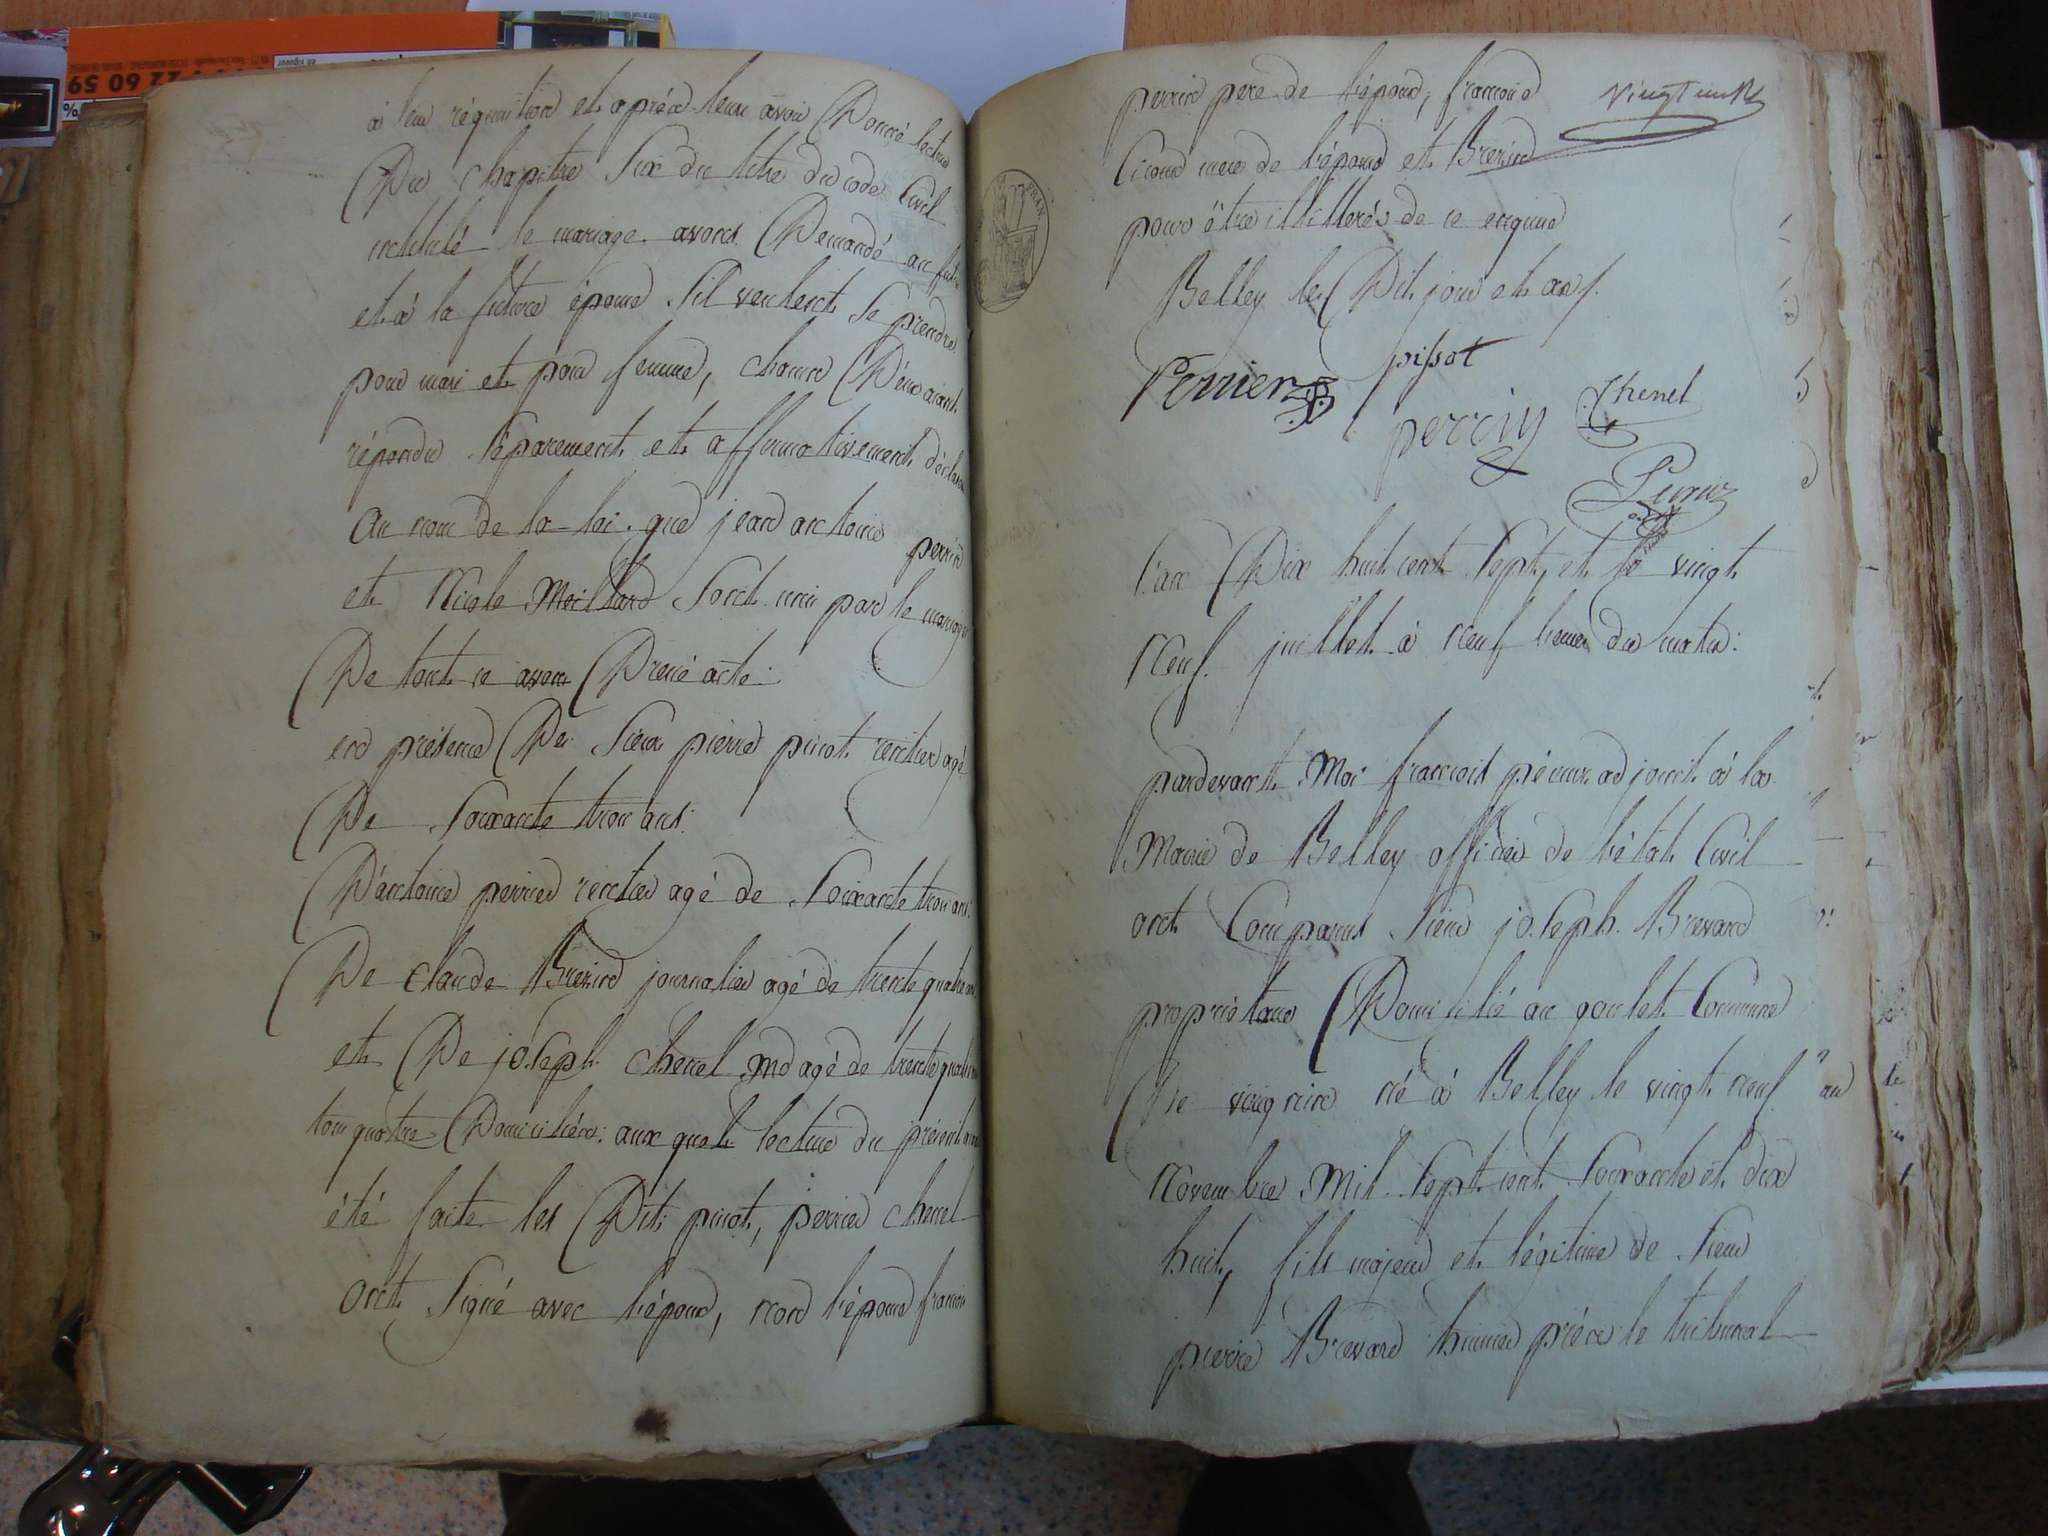 59 60 22
%
à leur réquisition et après leur avoir Donné lecture
Du chapitre Six du titre du code Civil
intitulé le mariage. avons Demandé au futur
et à la future épouse S'il veulent Se prendre
pour mari et pour femme, chacun D'eux aiant
répondu Séparement et affirmativement déclarons
au nom de la loi que jean antoine perrin
et Nicole Meillard Sont unis par le mariage
De tout ce avons Dressé acte.
en présence De Sieur pierre pissot rentier agé
De Soixante trois ans.
D'antoine perrier rentier agé de Soixante trois ans.
De claude Brezind journalier agé de trente quatre ans
et De joseph. chenel md agé de trente quatre ans
tous quatre Domiciliés: aux quels lecture du présent a
été faite les Dits pissot, perrier chenel
ont Signé avec l'époux, non l'épouse francois
vingt un
perrin pere de l'époux, francoise
mere de l'époux et Brezind
pour être illitterés de ce enquise
Belley les Dit jour et an
Perrier pissot
Chenel
perrin
FRAN
l'an Dix huit cent Sept, et le vingt
Neuf juillet à neuf heures du matin:
pardevant Moi francois adjoint à la
Mairie de Belley officier de l'état Civil
ont Comparus Sieur joseph. Brevard
propriétaire Domicilié au goulet Commune
De virignin né à Belley le vingt neuf
Novembre Mil Sept cent Soixante et dix
huit, fils majeur et légitime de Sieur
pierre Brevard huissier près le tribunal